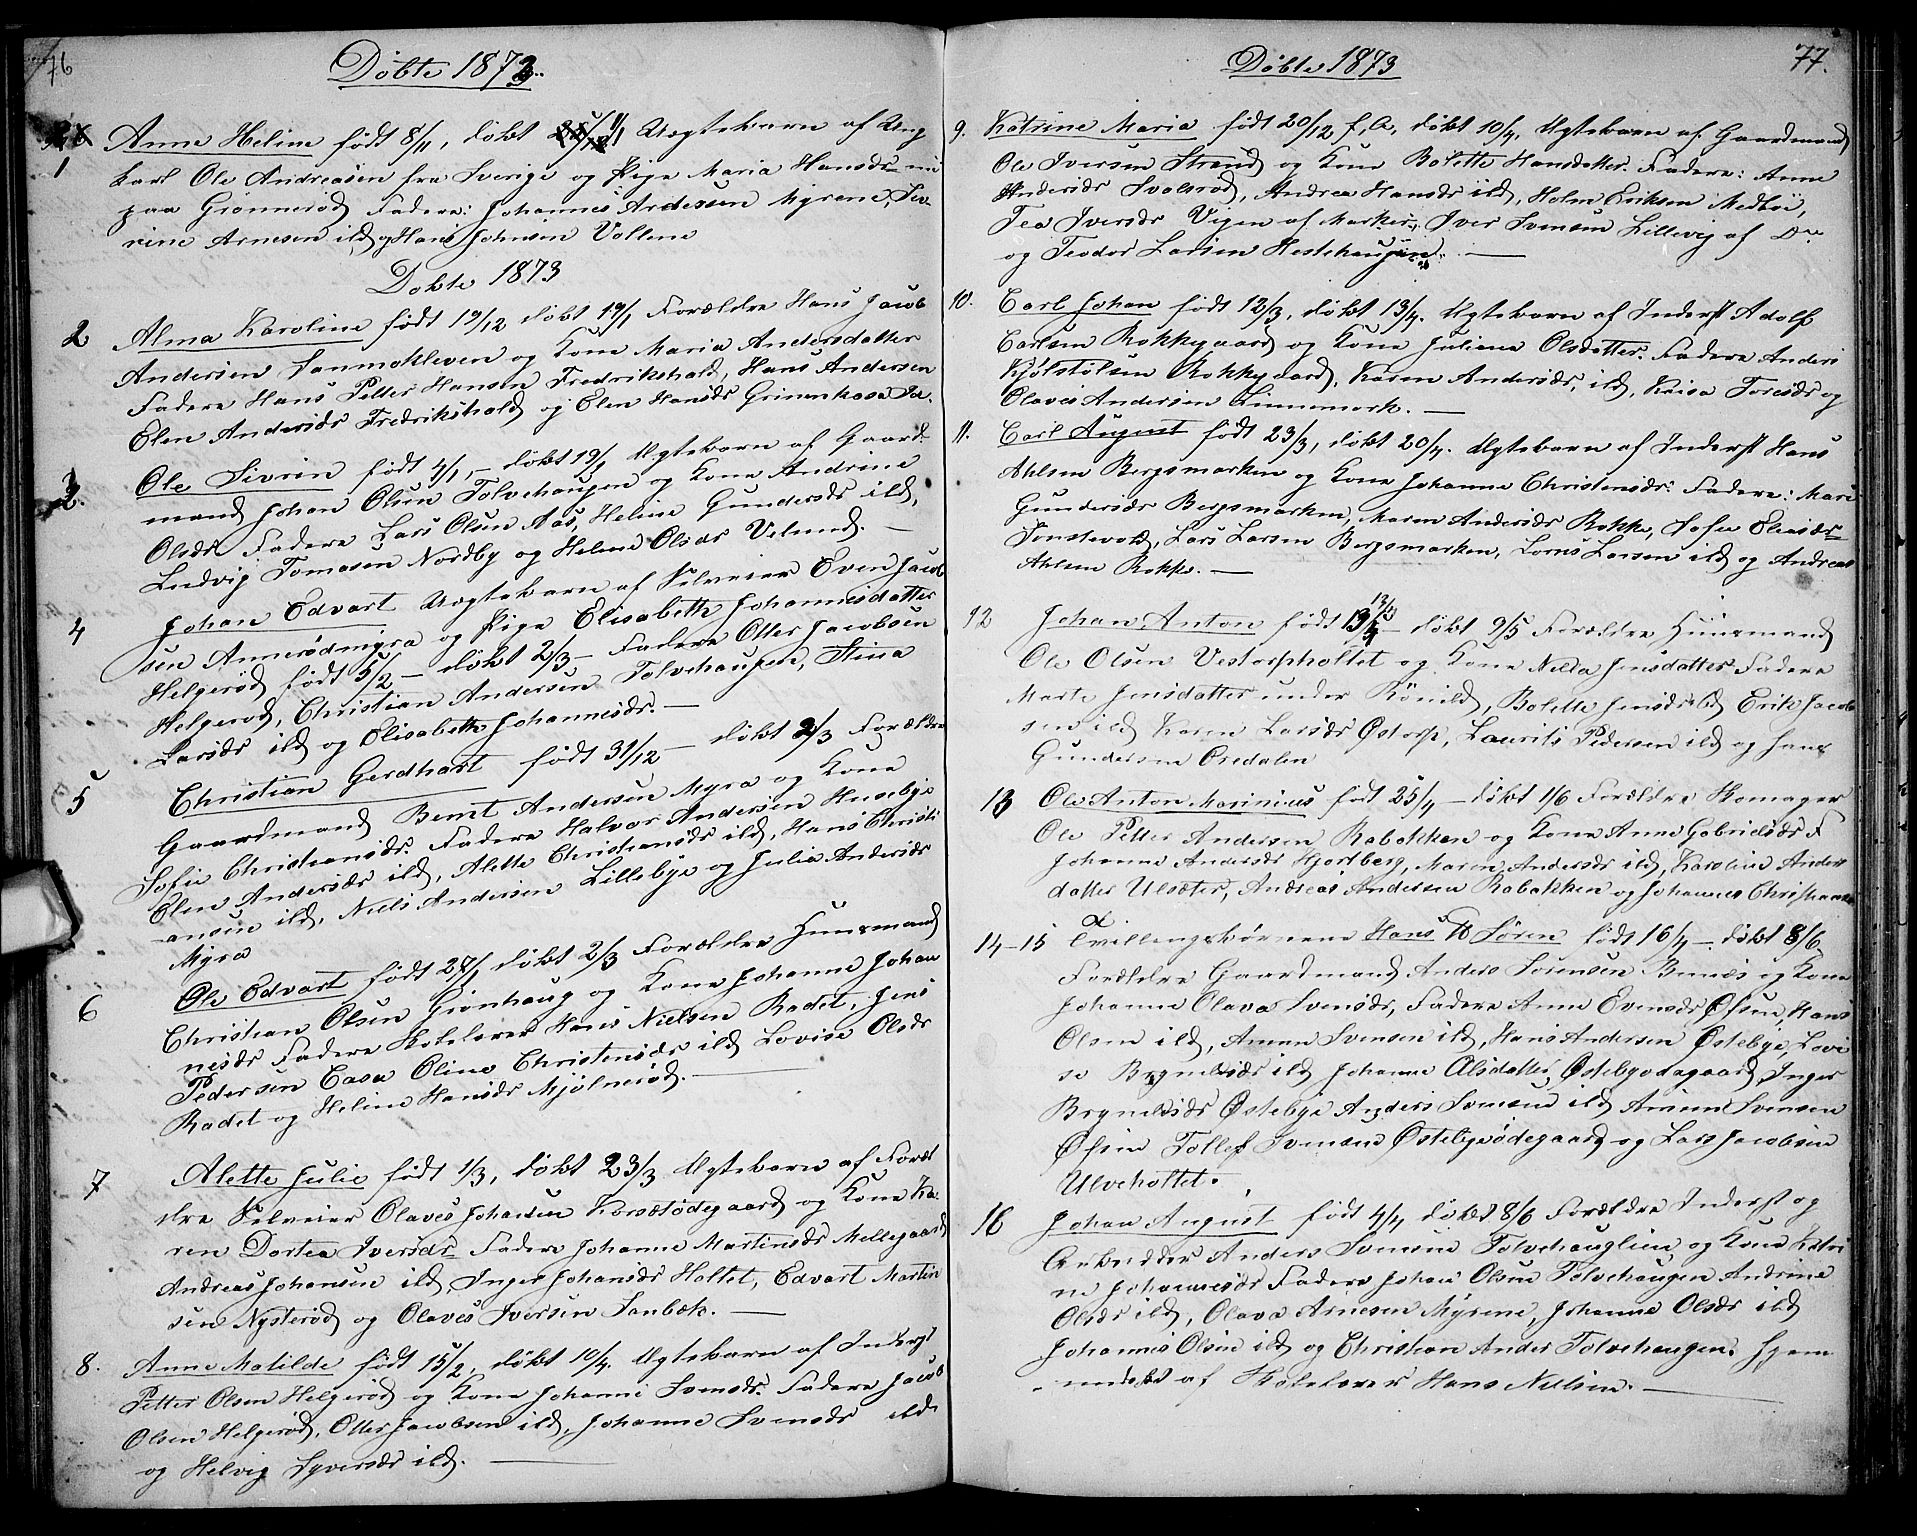 76
Döbte 1873.
1 Anne Heline født 8/11, døbt 1/1 Uægtebarn af Ung
karl Ole Andreasen fra Sverige og Pige Maria Hansdr
paa Grönneröd Fadere: Johannes Andersen Myrene, Se-
rine Arnesen ild og Hans Johnsen Vollene
Döbte 1873
2 Alma Karoline født 19/12 døbt 19/1 Forældre Hans Jacob
Andersen Sanmokleven og Kone Maria Andersdatter
Fadere Hans Petter Hansen Fredrikshald, Hans Andersen
Elen Andersdr Fredrikshald og Elen Hansdr
3. Ole Sivrin født 4/1, - døbt 19/1 Ægtebarn af Gaard-
mand Johan Olsen Tolvehaugen og Kone Andrine
Olsdr Fadere Lars Olsen Aas, Heline Gundersdr ild,
Ludvig Tomasen Nordby og Helene Olsdr Velund. —
4 Johan Edvart Uægtebarn af Selveier Even Jacob
sen Annerödmyra og Pige Elisabeth Johannesdatter
Helgeröd født 5/2 — døbt 2/3 — Fadere Otter Jacobsen
Helgeröd, Christian Andersen Tolvehaugen, Stina
Larsdr ild og Elisabeth Johannesdr. —
5 Christian Gerdhart født 31/12 — døbt 2/3 Forældre
Gaardmand Bernt Andersen Myra og Kone
Sofie Christiansdr. Fadere Halvor Andersen Husebye
Elen Andersdr ild, Alette Christiansdr ild, Hans Christi
ansen ild, Niels Andersen Lillebye og Julia Andersdr
Myra
6 Ole Edvart født 27/1 døbt 2/3 Forældre Huusmand
Christian Olsen Grönhaug og Kone Johanne Johan
nesdr Fadere Skolelærer Hans Nielsen Radet, Jens
Pedersen Casa Oline Christensdr ild Lovise Olsdr
Radet og Heline Hansdr Mjölneröd. —
7 Alette Julie født 1/3, døbt 23/3 Ægtebarn af Foræl
dre Selveier Olaves Johansen Korsetödegaard og Kone Ka-
ren Dortea Iversdr Fadere Johanne Martinsdr Mellegaard
Andreas Johansen ild, Inger Johansdr Holtet, Edvart Martin
sen Nysteröd og Olaves Iversen Sanbæk. —
8. Anne Matilde født 15/2, døbt 10/4. Ægtebarn af Inderst
Petter Olsen Helgeröd og Kone Johanne Svensdr. Fadere Jacob
Olsen Helgeröd, Otter Jacobsen ild, Johanne Svensdr ild
og Helvig Syversdr ild. —
77.
Döbte 1873
9. Katrine Maria født 20/12 f. A, døbt 10/4, Ægtebarn af Gaardmand
Ole Iversen Strand og Kone Bolette Hansdatter. Fadere: Anne
Andersdr Svalsröd, Andrea Hansdr ild, Holm Eriksen Medböe,
Tea Iversdr Vigen af Marker, Iver Svensen Lillevig af Do
og Teodor Larsen Hestehaugen. —
10. Carl Johan født 12/3, døbt 13/4. Ægtebarn af Inderst Adolf
Carlsen Rokkegaard og Kone Juliana Olsdatter. Fadere Anders
Kjölstölsen Rokkegaard, Karen Andersdr, ild, Kaisa Toresdr og
Olaves Andersen Linnemork. —
11. Carl August født 23/3, døbt 20/4. Ægtebarn af Inderst Hans
Ahlsen Bergsmarken og Kone Johanne Christensdr: Fadere: Mari
Gundersdr Bergsmarken, Maren Andersdr Rokke, Sofie Eliasdr
Tonstevold, Lars Larsen Bergsmarken, Lorns Larsen ild og Andreas
Ahlsen Rokke. —
12 Johan Anton født 13/4 — døbt 9/5 Forældre Huusmand
Ole Olsen Vestorpholtet og Kone Nilla Jensdatter Fadere
Marte Jensdatter under Rönild, Bolette Jensdr ild Erik Jacob
sen ild Karen Larsdr Östorp, Laurits Pedersen ild og Hans
Gundersen Oredalen
13 Ole Anton Marinius født 25/4 — døbt 1/6 Forældre Skomager
Ole Petter Andersen Rabakken og Kone Anne Gabrielsdr F
Johanne Andersdr Hjortberg, Maren Andersdr ild, Karoline Anders
datter Ulsæter, Andreas Andersen Rabakken og Johannes Christiansen
14-15 Tvillingebörnene Hans & Sören født 16/4 — døbt 8/6
Forældre Gaardmand Anders Sörensen Bennes og Kone
Johanne Olava Svensdr, Fadere Anne Evensdr Öfsen, Hans
Olsen ild, Amun Svensen ild, Hans Andersen Östebye, Lovi
se Brynildsdr ild Johanne Alsdatter Östebyödegaard, Inger
Brynildsdr Östebye Anders Svensen ild Amun Svensen
Öfsin Tollef Svensen Östebyeödegaard og Lars Jacobsen
Ulveholtet.
16 Johan August født 4/4 døbt 8/6 Forældre Inderst og
Arbeider Anders Svensen Tolvehauglien og Kone Katri
ne Johannesdr Fadere Johan Olsen Tolvehaugen Andrine
Olsdr ild, Olava Arnesen Myrene, Johanne Olsdr ild
Johannes Olsen ild og Christian Anders Tolvehaugen. Hjem
medøbt af Skolelærer Hans Nielsen. —